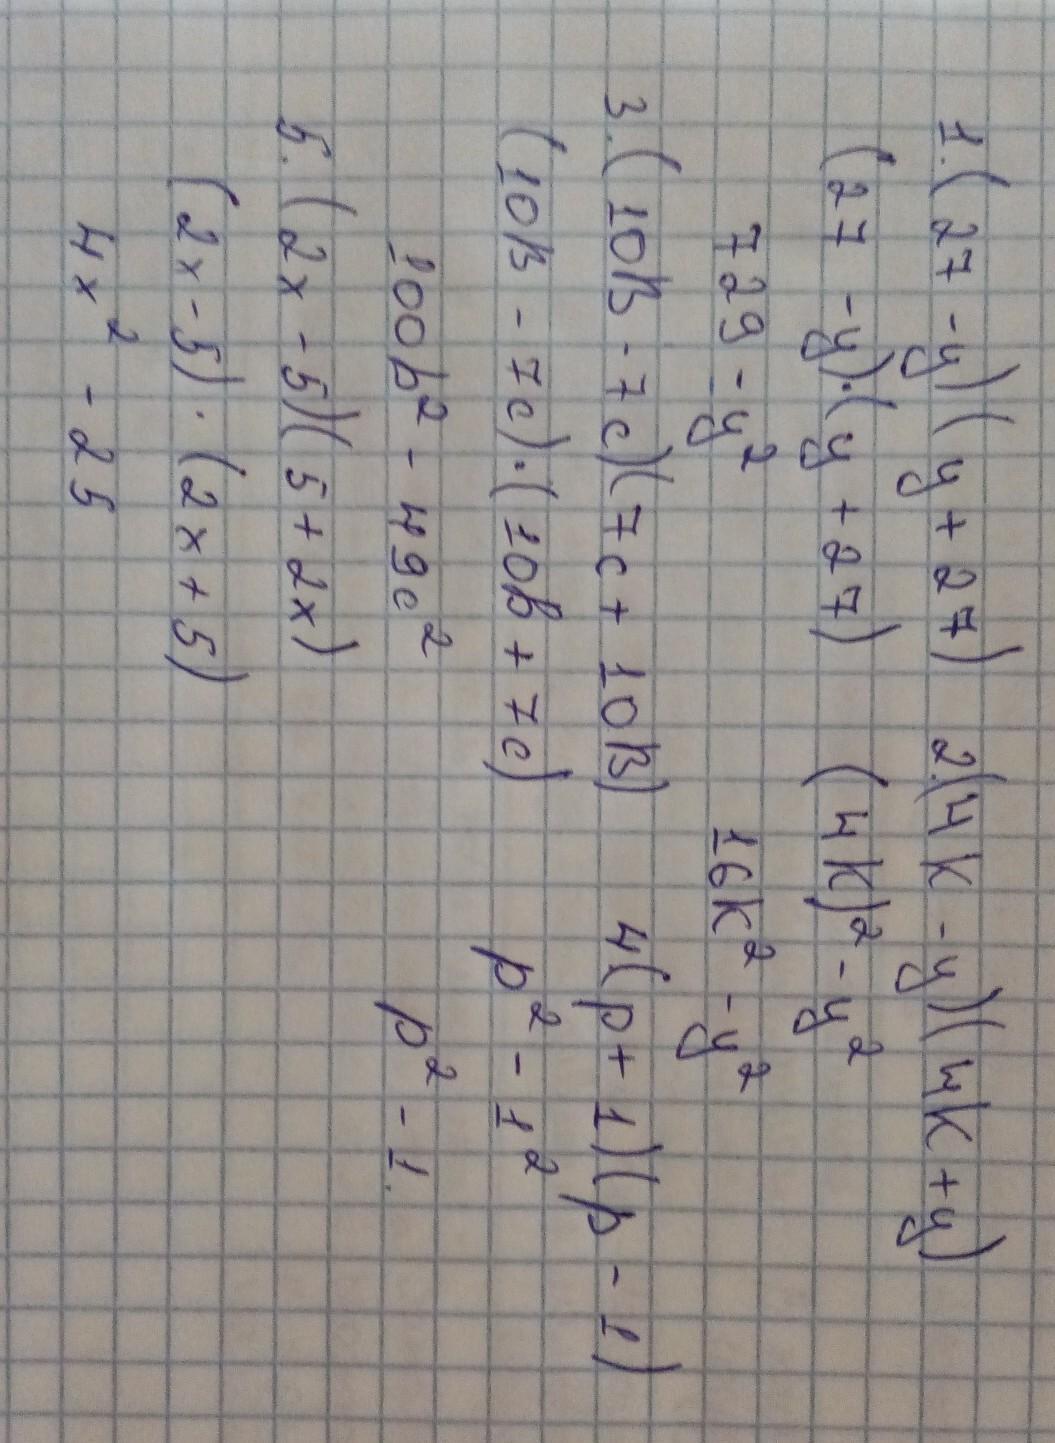 1. (27 - y)(y + 27)
(27 - y)·(y + 27)
729 - y²
2. (4k - y)(4k + y)
(4k)² - y²
16k² - y²
3. (10в - 7c)(7c + 10в)
(10в - 7c)·(10в + 7c)
100в² - 49c²
4(p + 1)(p - 1)
p² - 1²
p² - 1.
5. (2x - 5)(5 + 2x)
(2x - 5)·(2x + 5)
4x² - 25